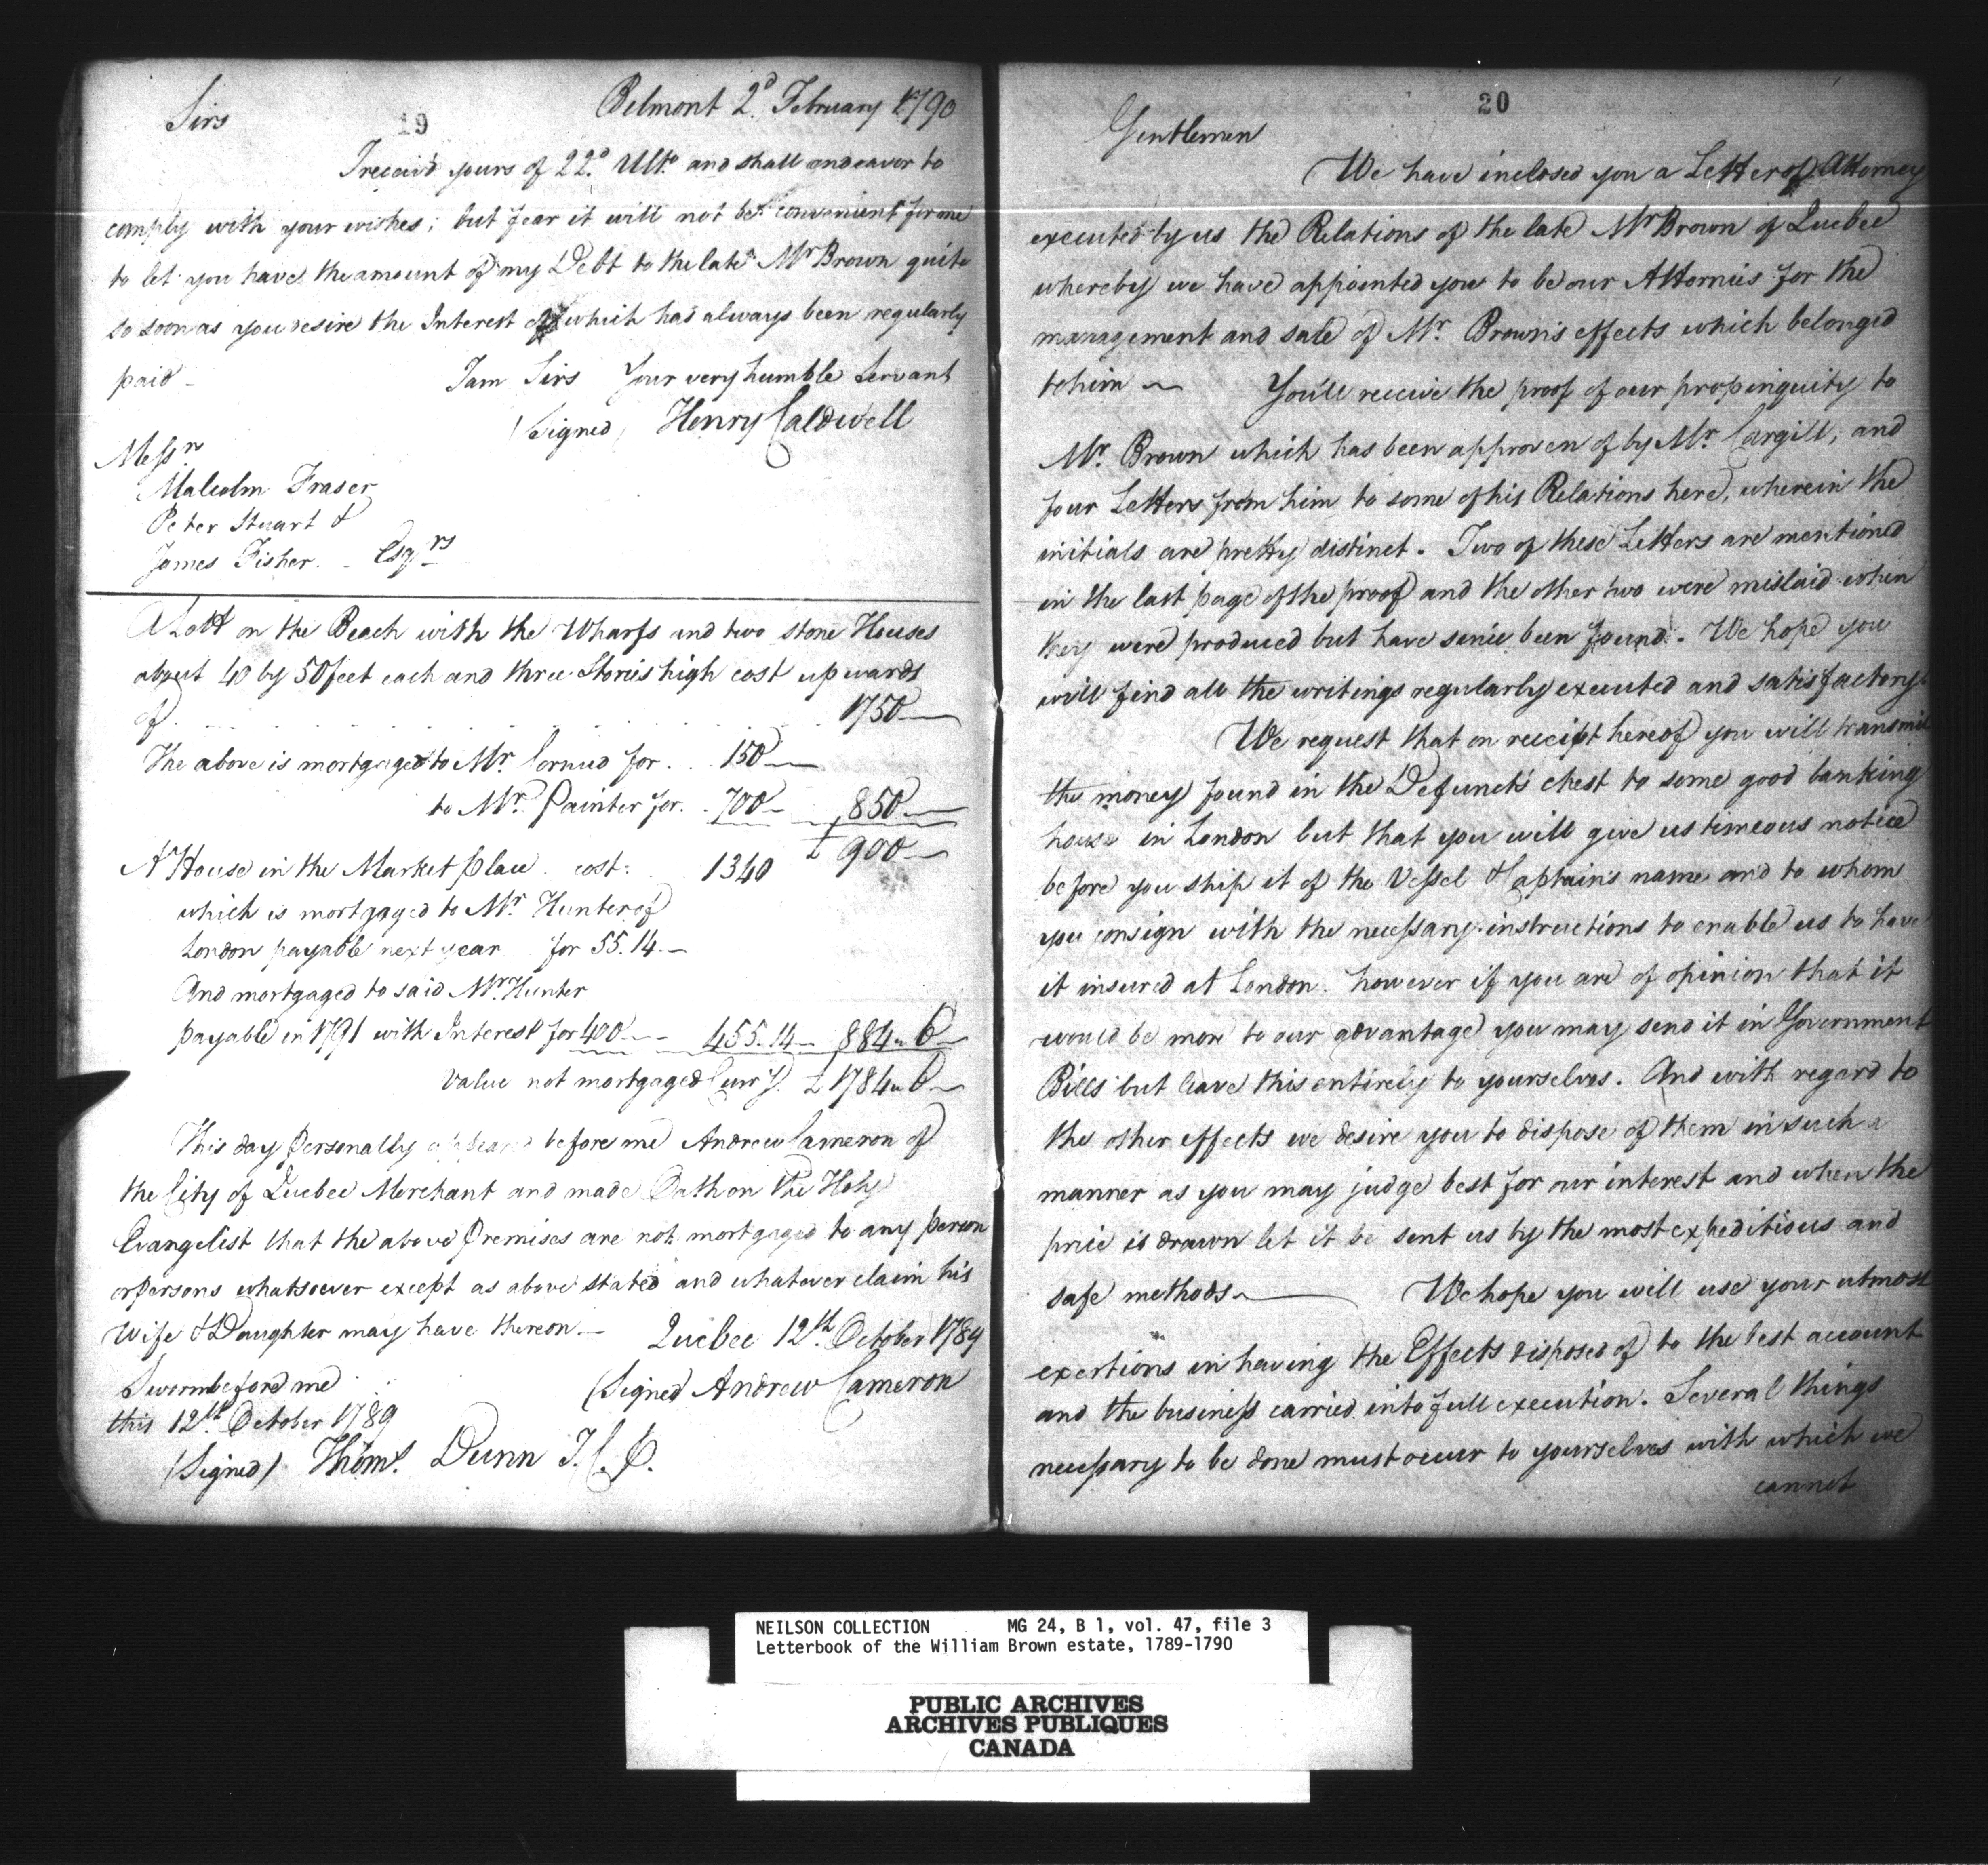 19
Sirs
Belmont 2.d February 1790
I receiv'd yours of 22.d Ulto. and shall endeavor to
comply with your wishes; but fear it will not be convenient for me
to let you have the amount of my Debt to the late Mr Brown quite
so soon as you desire the Interest of which has always been regularly
paid –
I am Sirs Your very humble Servant
(Signed) Henry Caldwell
Messrs
Malcolm Fraser
Peter Stuart &
James Fisher. - Esqrs
A Lott on the Beach with the Wharfs and two stone Houses
about 40 by 50 feet each and three Stories high cost upwards
of . . . . . . . . 1750 —
The above is mortgaged to Mr. Cornud for . . 150 —
to Mr. Painter for. - 700 – 850 —
£ 900 —
A House in the Market place . cost: 1340
which is mortgaged to Mr. Hunter of
London payable next year for 55. 14. –
And mortgaged to said Mr. Hunter
payable in 1791 with Interest for 400 – – 455. 14 – 884 " 6 –
Value not mortgaged Curry. £ 1784 " 6 –
This day personally appeared before me Andrew Cameron of
the City of Quebec Merchant and made Oath on the Holy
Evangelist that the above Premises are not mortgaged to any person
or persons whatsoever except as above stated and whatever claim his
Wife & Daughter may have thereon. – Quebec 12th October 1789
Sworn before me
(Signed Andrew Cameron
this 12th October 1789
(Signed) Thoms. Dunn J. C. P.
20
Gentlemen
We have inclosed you a Letter of Attorney
executed by us the Relations of the late Mr Brown of Quebec
whereby we have appointed you to be our Attornies for the
management and sale of Mr. Brown's effects which belonged
to him — You'll receive the proof of our propinquity to
Mr. Brown which has been approven of by Mr. Cargill, and
four Letters from him to some of his Relations here, wherein the
initials are pretty distinct. Two of these Letters are mentioned
in the last page of the proof and the other two were mislaid when
they were produced but have since been found. We hope you
will find all the writings regularly executed and satisfactory.
We request that on receipt hereof you will transmit
the money found in the Defunct's chest to some good banking
house in London but that you will give us timeous notice
before you ship it of the Vessel & Captain's name and to whom
you consign with the necessary instructions to enable us to have
it insured at London. however if you are of opinion that it
would be more to our advantage you may send it in Government
Bills but leave this entirely to yourselves. And with regard to
the other effects we desire you to dispose of them in such a
manner as you may judge best for our interest and when the
price is drawn let it be sent us by the most expeditious and
safe methods. — We hope you will use your utmost
exertions in having the Effects disposed of to the best account
and the business carried into full execution. Several things
necessary to be done must occur to yourselves with which we
cannot
NEILSON COLLECTION MG 24, B 1, vol. 47, file 3
Letterbook of the William Brown estate, 1789-1790
PUBLIC ARCHIVES
ARCHIVES PUBLIQUES
CANADA